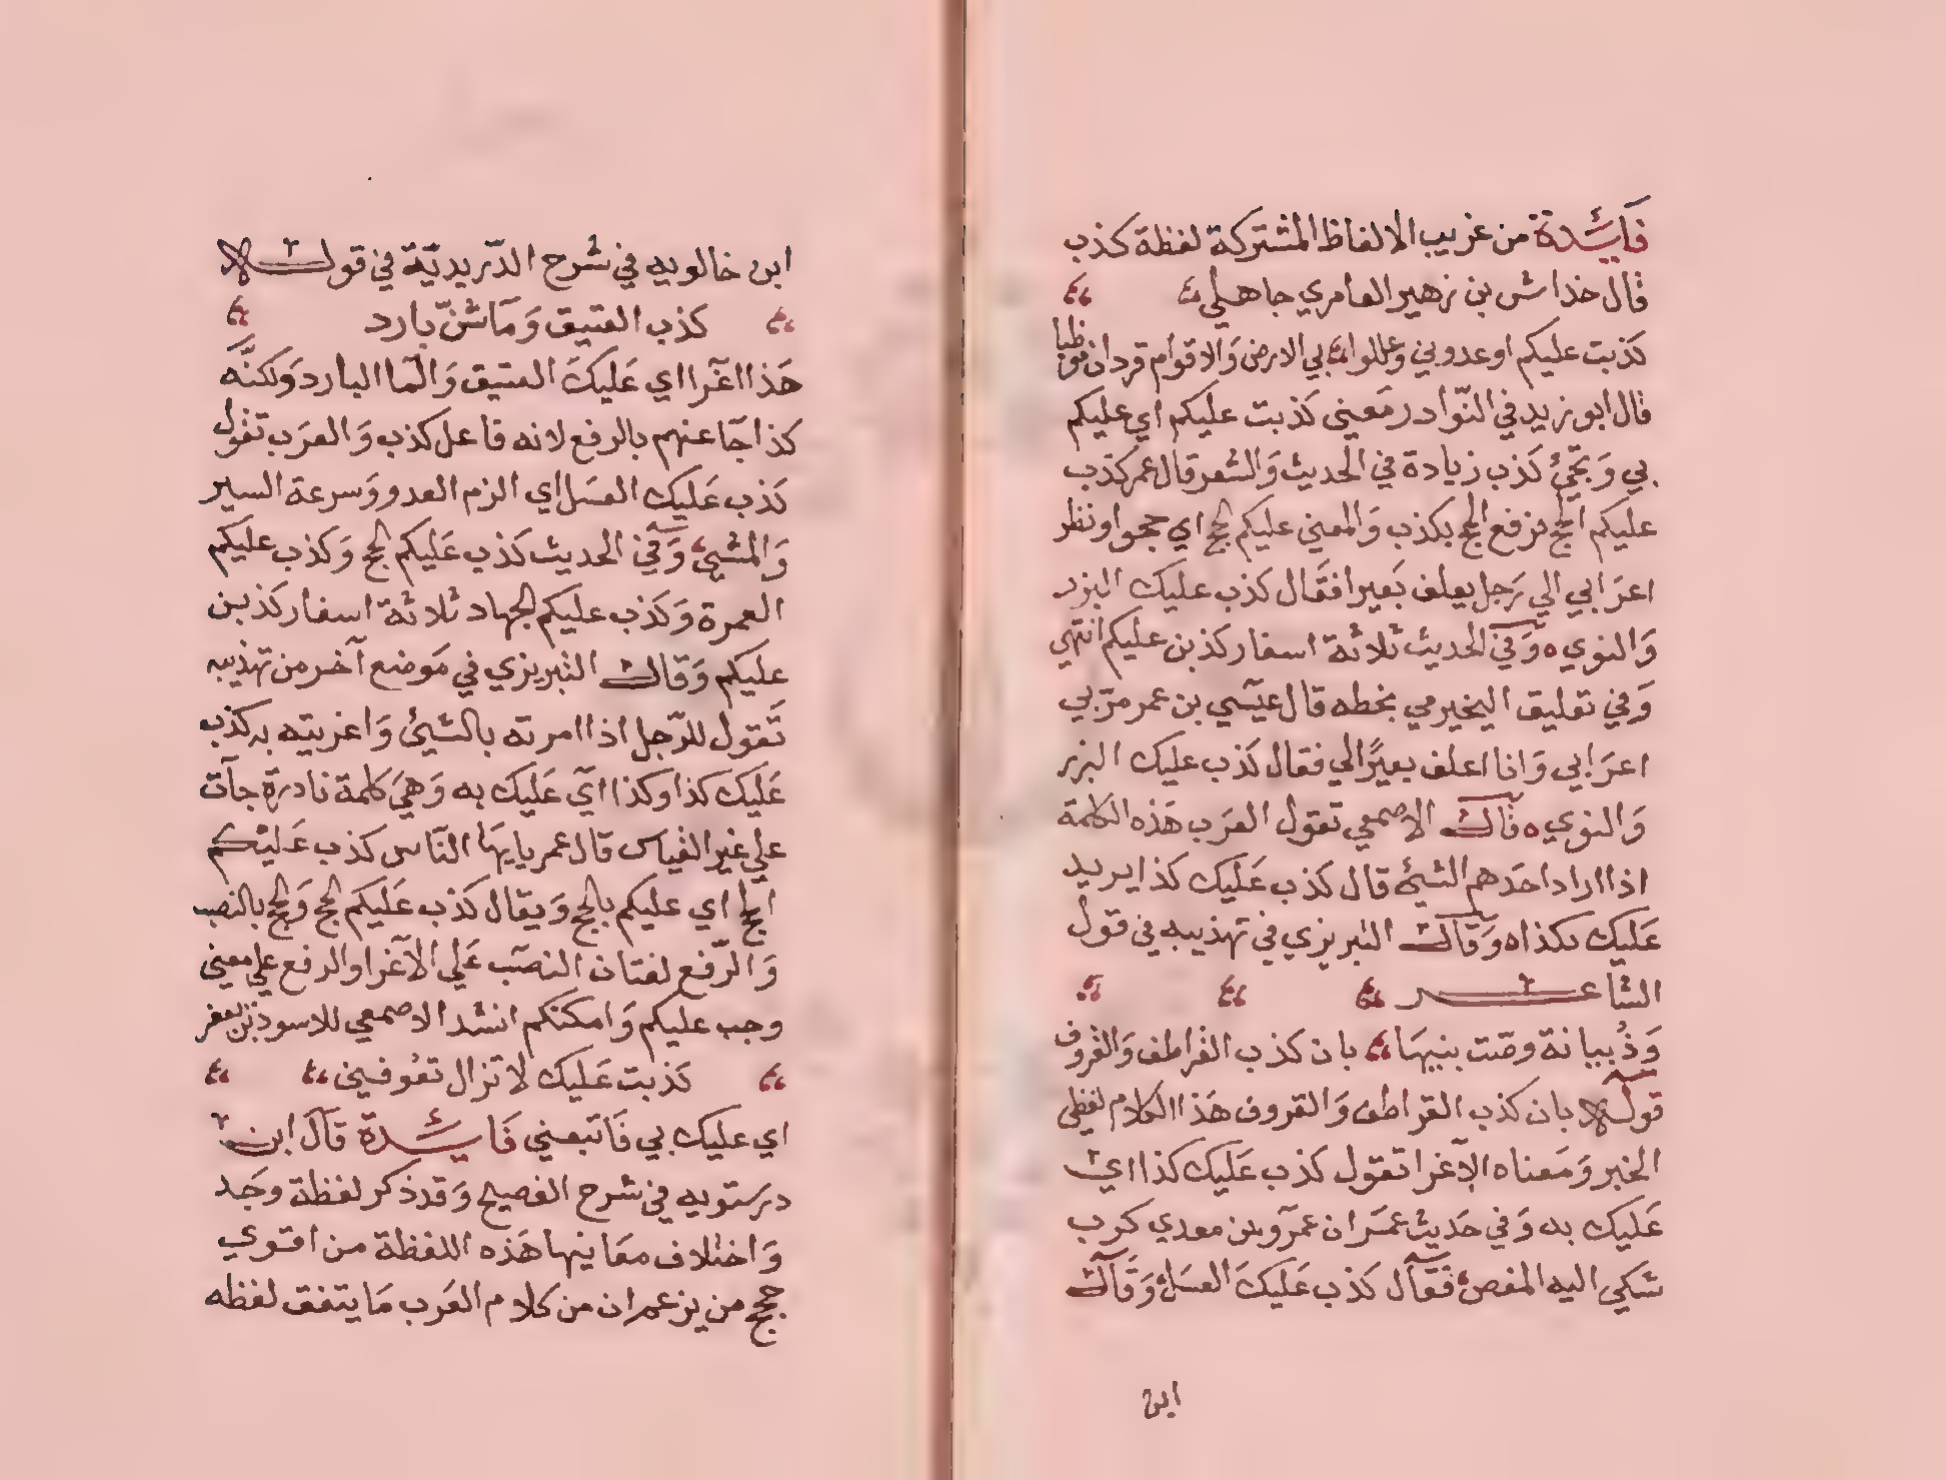 فَايئدة من غريب الالفاظ المشتركة لفظة كذب
قال خداش بن زهير العامري جاهلي
كذبت عليكم اوعدوني وعللوا بي الارض والاقوام قردان موظبا
قال ابو زيد في النّوادر معني كذبت عليكم اي عليكم
بي وَيجيئ كذب زيادة في الحديث وَالشعر قال عمر كذب
عليكم الحج نرفع الحج بكذب وَالمعني عليكم الحج اي حجوا ونظر
اعرَابي الي رَجل يعلف بَعيرا فقَال كذب عليك البزر
وَالنوي ه وَفي الحديث ثلاثة اسفار كذبن عليكم انتهي
وَفي تعليق النجيرمي بخطه قال عيَسي بن عمر مرّ بي
اعرَابي وَانا اعلف بعيرًا لي فقال كذب عليك البزر
وَالنوي ه قال الاصمعي تقول العرَب هَذه الكلمة
اذا اراد احَدهم الشيئ قال كذب عَليك كذا يريد
عَليك بكذا ه وَقال التبريزي في تهذيبه في قول
الشاعر
وَذُبيانة وصّت بنيهَا بان كذب القراطف وَالقروف
قوله بان كذب القراطف وَالقروف هَذا الكلام لفظي
الخبر وَمَعناه الاغرا تقول كذب عَليك كذا اي
عَليك به وَفي حَديث عمَر ان عمرَو بن معدي كرب
شكي اليه المغص فقَال كذب عَليكَ العسَل وَقَال
ابن
ابن خالويه في شرح الدّريديّة في قوله
كذب العتيق وَمَا شنّ بارد
هَذا اغرا اي عَليكَ العتيق وَالما البارد وَلكنّه
كذا جَا عنهم بالرفع لانه فاعل كذب وَالعرَب تقول
كذب عَليك العسَل اي الزم العدو وَسرعة السير
وَالمشيئ وَفي الحديث كذب عَليكم الحج وَكذب عليكم
العمرة وَكذب عليكم الجهاد ثلاثة اسفار كذبن
عليكم وَقال التبريزي في مَوضع آخر من تهذيبه
تَقول للرّجل اذا امرته بالشيئ وَاغريته به كذب
عَليك كذا وكذا اي عَليك به وَهيَ كلمة نادرة جآت
علي غير القياس قال عمر يايهَا النّاس كذب عَليكم
الحج اي عليكم بالحج وَيقال كذب عَليكم الحج وَالحج بالنصب
وَالرّفع لغتان النصَب عَلي الاغرا والرفع علي معني
وجب عليكم وَامكنكم انشد الاصمعي للاسود بن يعفر
كذبت عَليك لا تزال تقُوفني
اي عليك بي فَاتبعني فَايئدة قَال ابن
درستويه في شرح الفصيح وَقد ذكر لفظة وجَد
وَاختلاف معَانيها هَذه اللفظة من اقوي
حجج من يزعم ان من كلام العَرب مَا يتفق لفظه